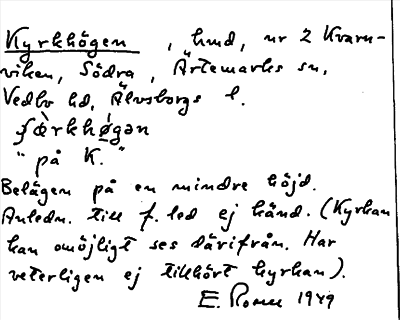 Kyrkhögen, hmd, nr 2 Kvarn-
viken, Södra, Ärtemarks sn,
Vedbo hd, Älvsborgs l.
ʃæ̀rkhǿgən
"på K."
Belägen på en mindre höjd.
Anledn. till f. led ej känd. (Kyrkan
kan omöjligt ses därifrån. Har
veterligen ej tillhört kyrkan).
E. 1949